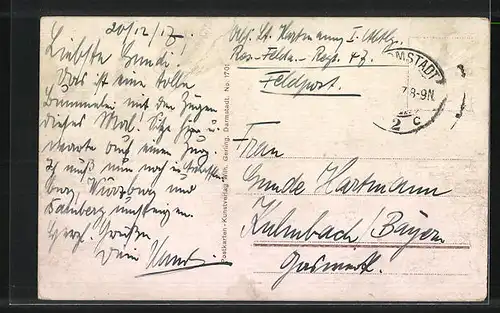 20/12/17.
Liebste Gundi!
Das ist eine tolle
Bummelei mit den Zügen
dieses Mal! Sitze hier u.
warte auf einen Zug.
Ich muß nun noch in
burg, Würzburg und
Bamberg umsteigen.
Herzl. Grüßen
Dein
Postkarten-Kunstverlag Wilh. Gerling, Darmstadt. No. 1701
Abs. Lt. Hartmann I. Abtlg.
Res.-Felda.-Regt. 47.
Feldpost.
DARMSTADT
8-9N.
2 c
Frau
Gunde Hartmann
Kulmbach / Bayern
Gaswerk.